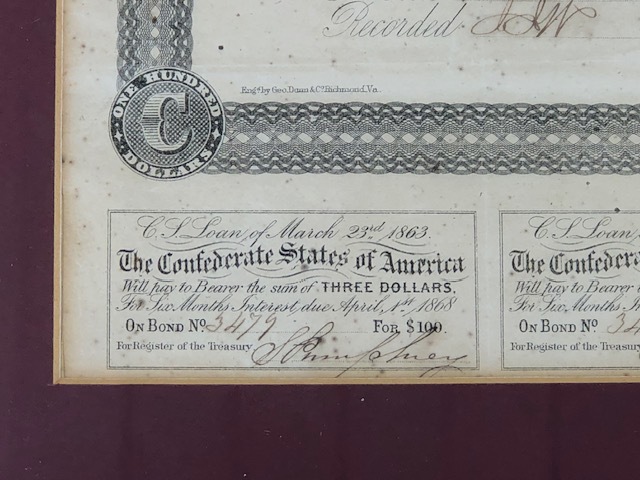 Recorded
Engd by Geo. Dunn & Co. Richmond, Va.
ONE HUNDRED
C
DOLLARS
C. S. Loan, of March 23rd 1863.
The Confederate States of America
Will pay to Bearer the sum of THREE DOLLARS,
For Six Months Interest, due April, 1st, 1868
ON BOND No 3479 FOR $100.
For Register of the Treasury
C. S. Loan,
The Confedera
Will pay to Bearer the
For Six Months
ON BOND No 34
For Register of the Treasury